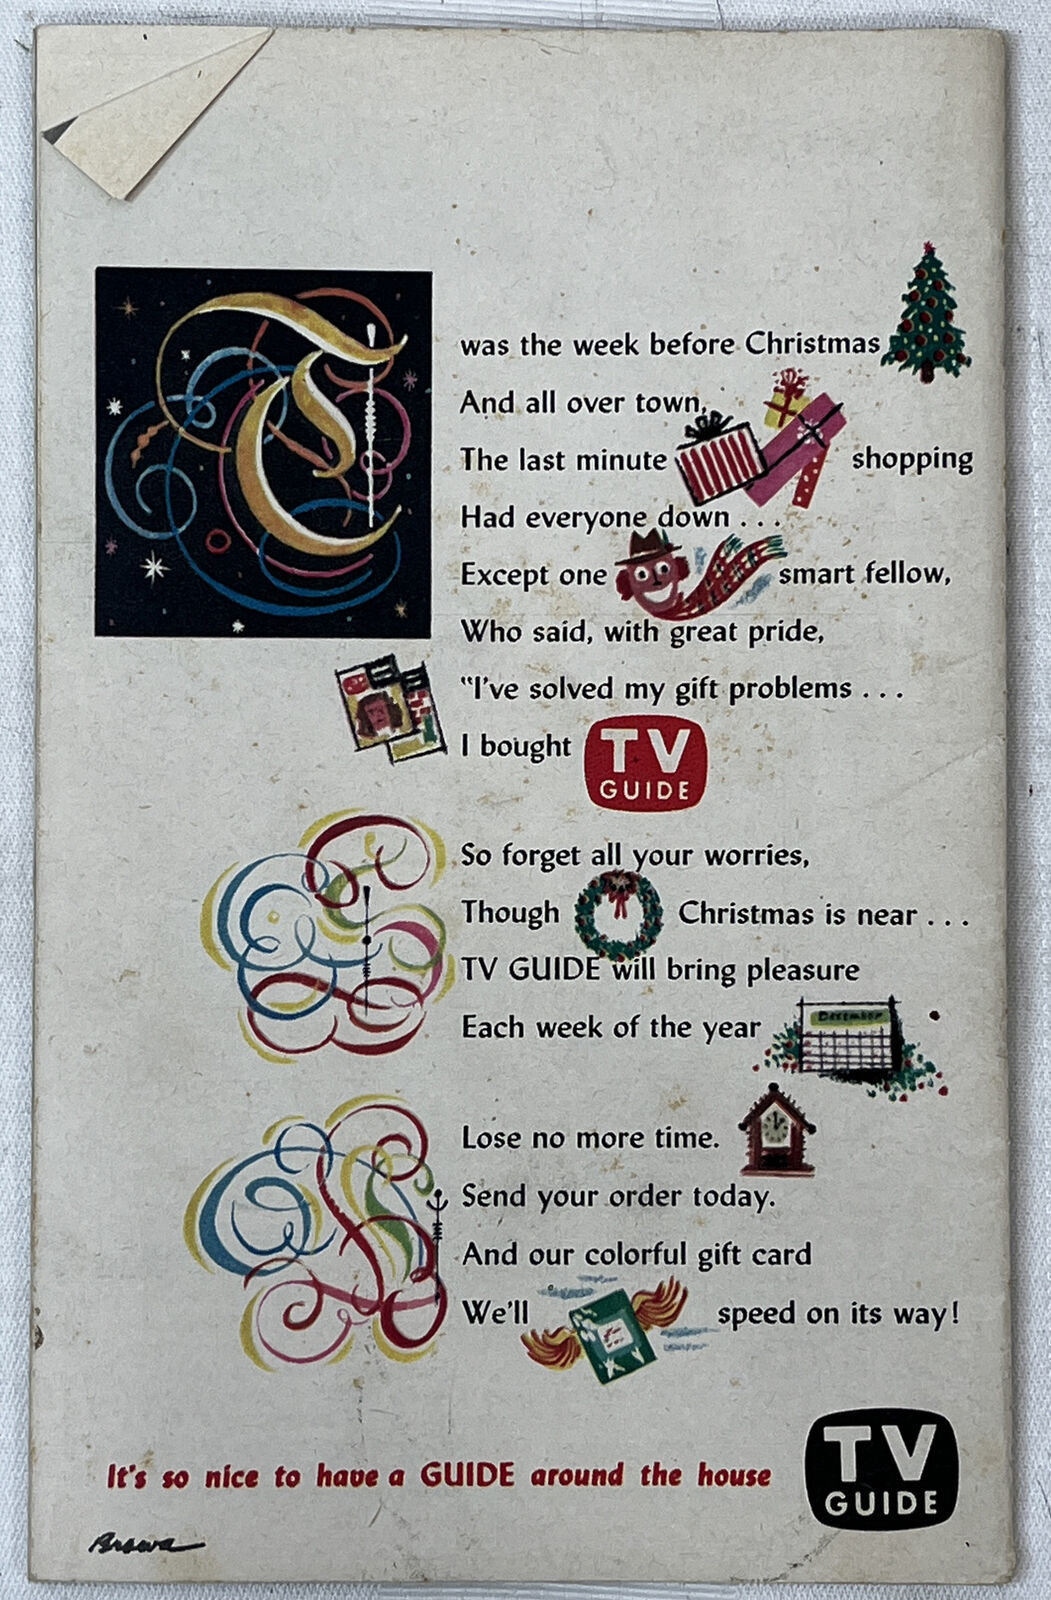 T was the week before Christmas
And all over town,
The last minute shopping
Had everyone down . . .
Except one smart fellow,
Who said, with great pride,
"I've solved my gift problems . . .
I bought TV GUIDE
So forget all your worries,
Though Christmas is near . . .
TV GUIDE will bring pleasure
Each week of the year
December
Lose no more time.
Send your order today.
And our colorful gift card
We'll speed on its way!
It's so nice to have a GUIDE around the house
TV
GUIDE